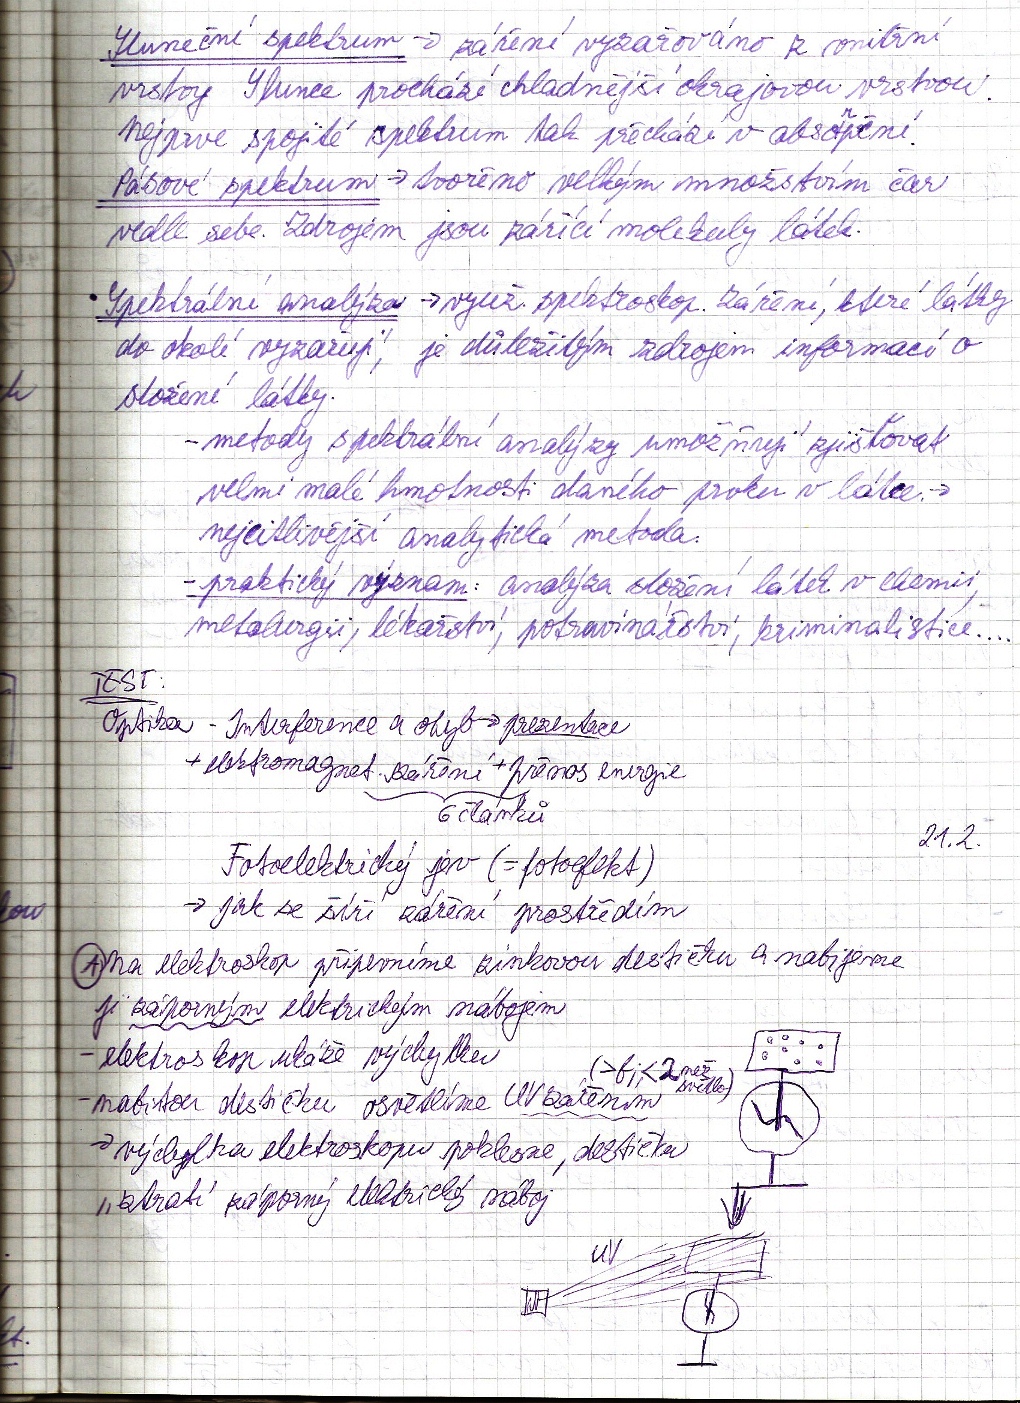 Sluneční spektrum → záření vyzařováno z vnitřní
vrstvy Slunce prochází chladnější okrajovou vrstvou.
Nejprve spojité spektrum tak přechází v absorpční.
Pásové spektrum → tvořeno velkým množstvím čar
vedle sebe. Zdrojem jsou zářící molekuly látek.
• Spektrální analýza → využ. spektroskop. Záření, které látky
do okolí vyzařují, je důležitým zdrojem informací o
složení látky.
- metody spektrální analýzy umožňují zjišťovat
velmi malé hmotnosti daného prvku v látce. →
nejcitlivější analytická metoda.
- praktický význam: analýza složení látek v chemii,
metalurgii, lékařství, potravinářství, kriminalistice....
TEST:
Optika - Interference a ohyb → prezentace
+ elektromagnet. záření + přenos energie
6 článků
21.2.
Fotoelektrický jev (= fotoefekt)
→ jak se šíří záření prostředím
(A) Na elektroskop připevníme zinkovou destičku a nabijeme
ji záporným elektrickým nábojem
- elektroskop ukáže výchylku
- nabitou destičku osvětlíme UV zářením
než světlo)
→ výchylka elektroskopu poklesne, destička
„ztratí záporný elektrický náboj
UV